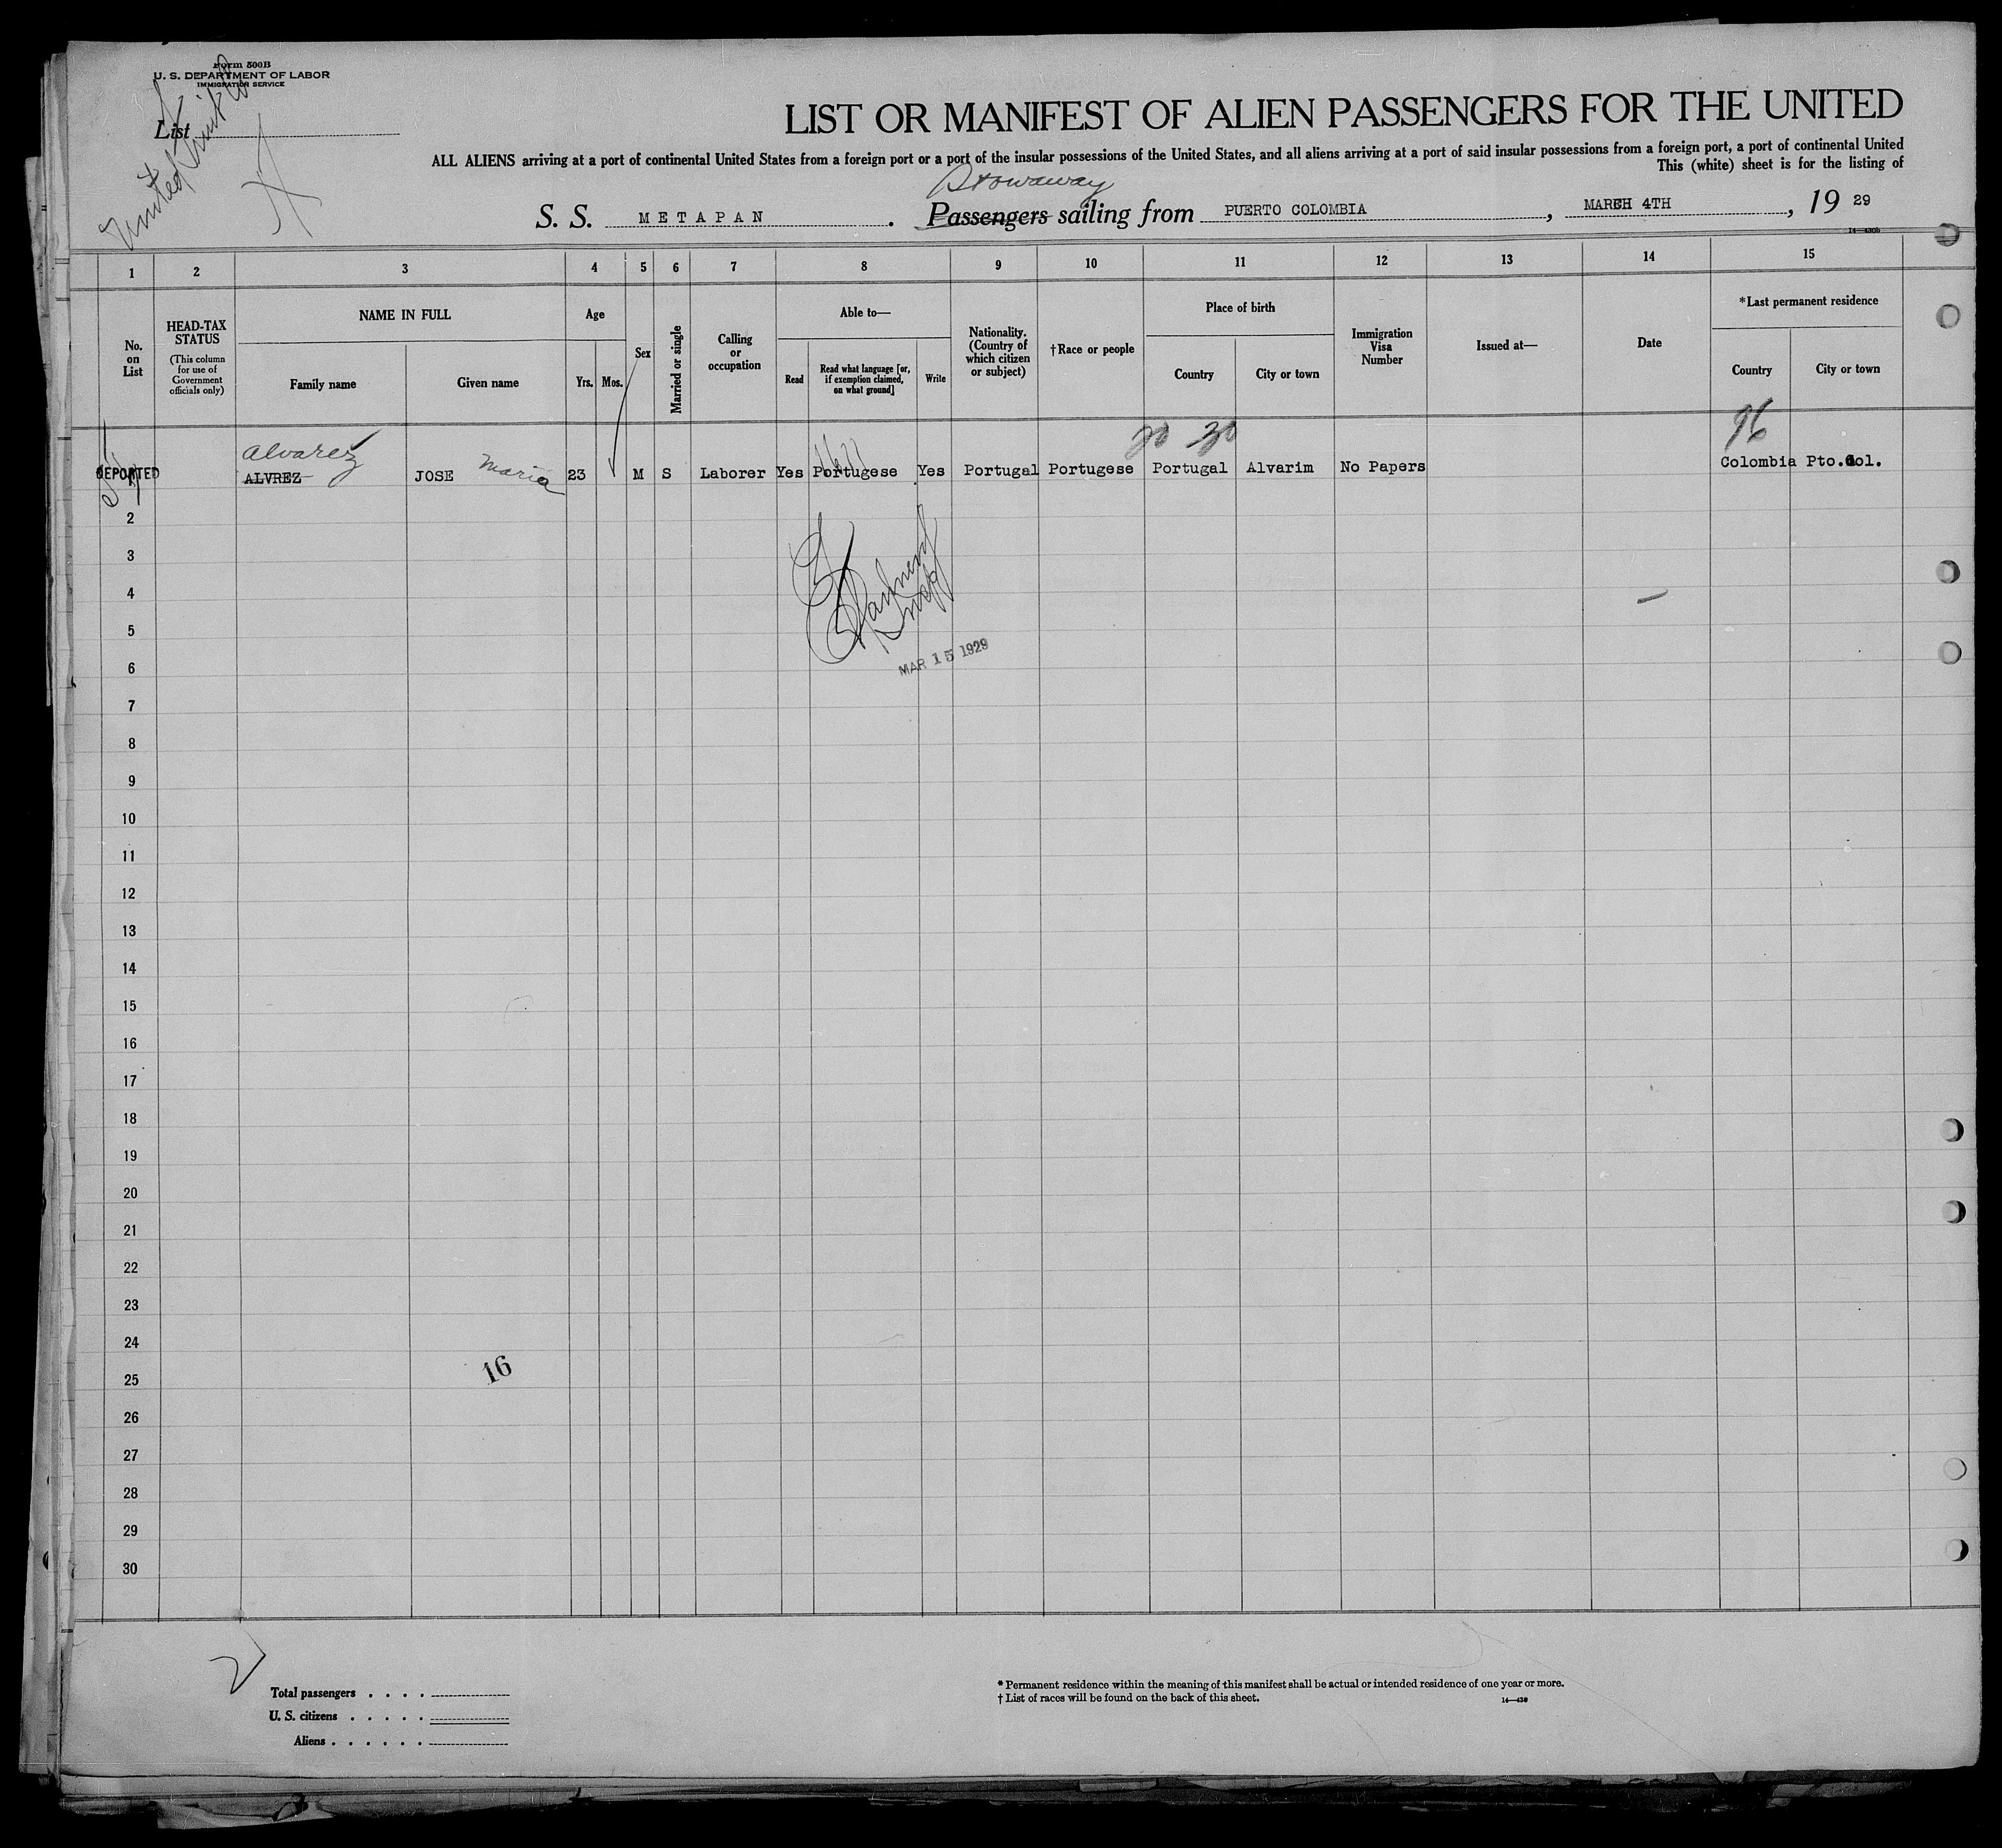 Form 500B
U. S. DEPARTMENT OF LABOR
IMMIGRATION SERVICE
List
United Fruit Co
LIST OR MANIFEST OF ALIEN PASSENGERS FOR THE UNITED
ALL ALIENS arriving at a port of continental United States from a foreign port or a port of the insular possessions of the United States, and all aliens arriving at a port of said insular possessions from a foreign port, a port of continental United
This (white) sheet is for the listing of
Stowaway
S. S. METAPAN. Passengers sailing from PUERTO COLOMBIA, MARCH 4TH, 19 29
14—430b
1 2 3 4 5 6 7 8 9 10 11 12 13 14 15
No. on List
HEAD-TAX STATUS
(This column for use of Government officials only)
NAME IN FULL
Family name
Given name
Age
Yrs.
Mos.
Sex
Married or single
Calling or occupation
Able to—
Read
Read what language [or, if exemption claimed, on what ground]
Write
Nationality. (Country of which citizen or subject)
†Race or people
Place of birth
Country
City or town
Immigration Visa Number
Issued at—
Date
*Last permanent residence
Country
City or town
Alvarez Maria 20 30 96
DEPORTED ALVREZ JOSE 23 M S Laborer Yes Portugese Yes Portugal Portugese Portugal Alvarim No Papers Colombia Pto.Col.
2
3
4
5
6
MAR 15 1929
7
8
9
10
11
12
13
14
15
16
17
18
19
20
21
22
23
24
16
25
26
27
28
29
30
2
Total passengers . . . .
U. S. citizens . . . . .
Aliens . . . . . .
* Permanent residence within the meaning of this manifest shall be actual or intended residence of one year or more.
† List of races will be found on the back of this sheet.
14—430